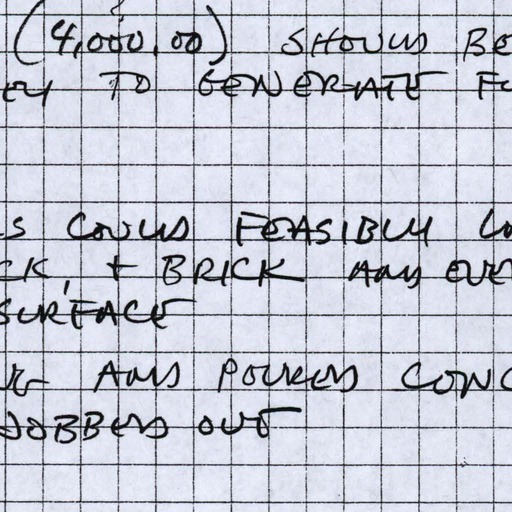 (4,000.00) SHOULD BE
TO GENERATE
COULD FEASIBLY
CK, + BRICK AND
SURFACE
AND POURED CONC
JOBBED OUT